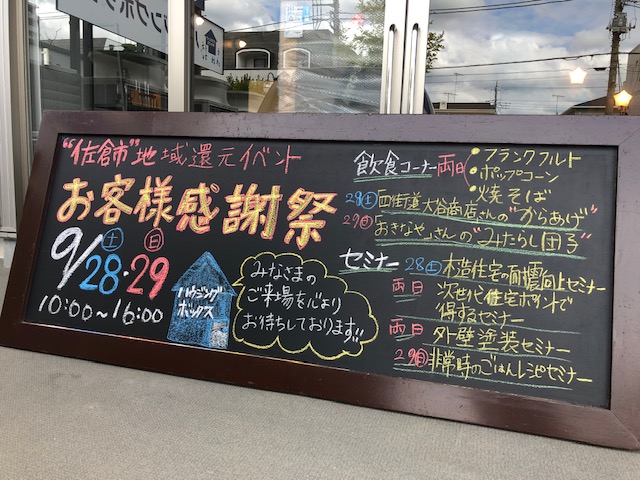 "佐倉市"地域還元イベント
お客様感謝祭
9/28(土)・29(日)
10:00~16:00
ハウジング
ボックス
みなさまの
ご来場を心より
お待ちしております!!
飲食コーナー 両日
・フランクフルト
・ポップコーン
・焼そば
28(土) 四街道大谷商店さんの"からあげ"
29(日) おきなやさんの"みたらし団子"
セミナー
28(土) 木造住宅の耐震向上セミナー
両日 次世代住宅ポイントで
得するセミナー
両日 外壁塗装セミナー
29(日) 非常時のごはんレシピセミナー